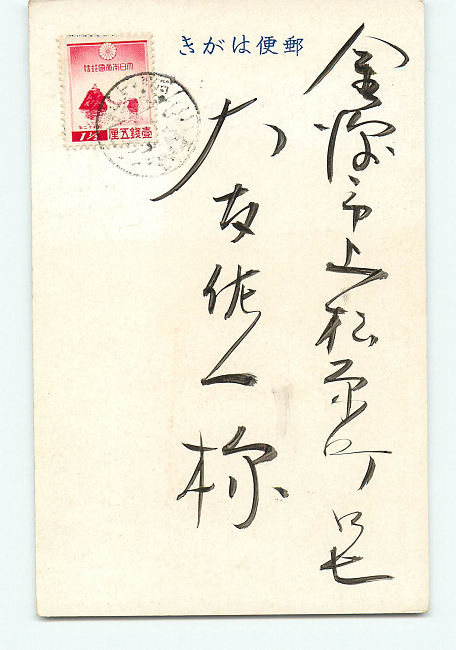 郵便はがき
金澤市上松原町
大友佐一様
大日本帝國郵便
1½
壹錢五厘